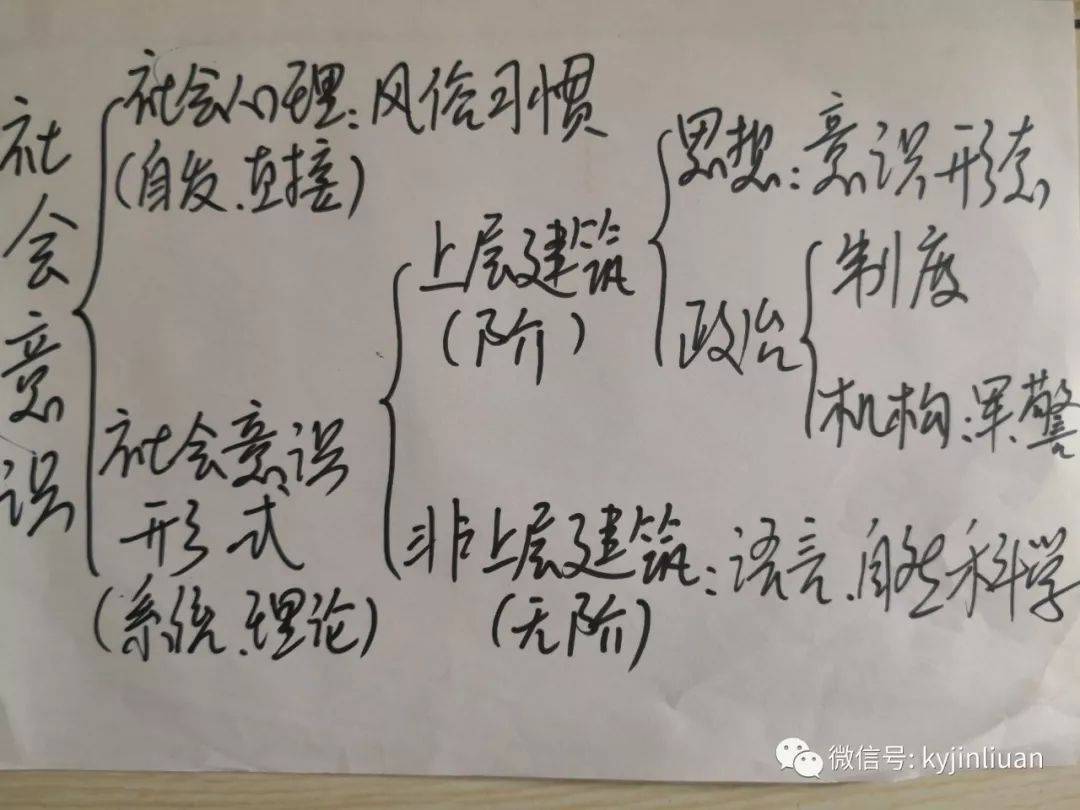 社会意识
社会心理：风俗习惯
（自发、直接）
社会意识
形式
（系统、理论）
上层建筑
（阶）
思想：意识形态
政治
制度
机构：军、警
非上层建筑：语言、自然科学
（无阶）
微信号: kyjinliuan